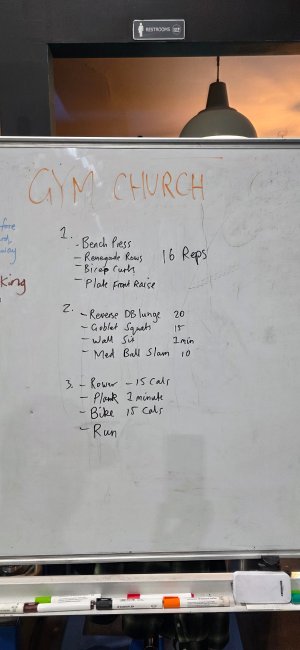 RESTROOMS
GYM CHURCH
fore
way
King
1.
- Bench Press
- Renegade Rows 16 Reps
- Bicep Curls
- Plate Front Raise
2.
- Reverse DB lunge 20
- Goblet Squats 15
- Wall Sit 1 min
- Med Ball Slam 10
3. - Rower - 15 Cals
- Plank 1 minute
- Bike 15 Cals
- Run